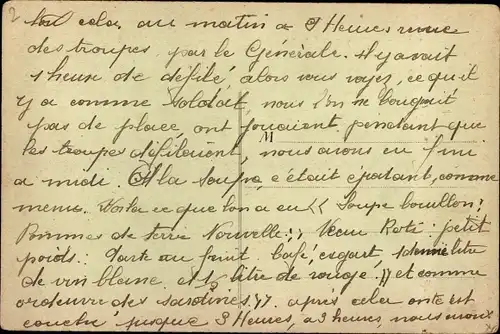 2
tou cela, au matin a 9 Heures revue
des troupes par le Générale. il y avait
1 heure de défilé, alors vous voyez, ce qu'il
y a comme soldat, nous l'on ne bougait
pas de place, ont jouaient, pendant que
M
les troupes défilaient, nous avons eu fini
a midi. A la soupe, c'était épatant, comme
menu. Voila ce que lon a eu << Soupe bouillon;
Pommes de terre Nouvelle; Veau Roti: petit
poids: Tarte au fruit. Café, 1 demie litre
de vin blanc et 1 litre de rouge. >> et comme
ordeuvre des sardines >>. après cela ont est
couché jusque 3 Heures, a 3 heures, nous